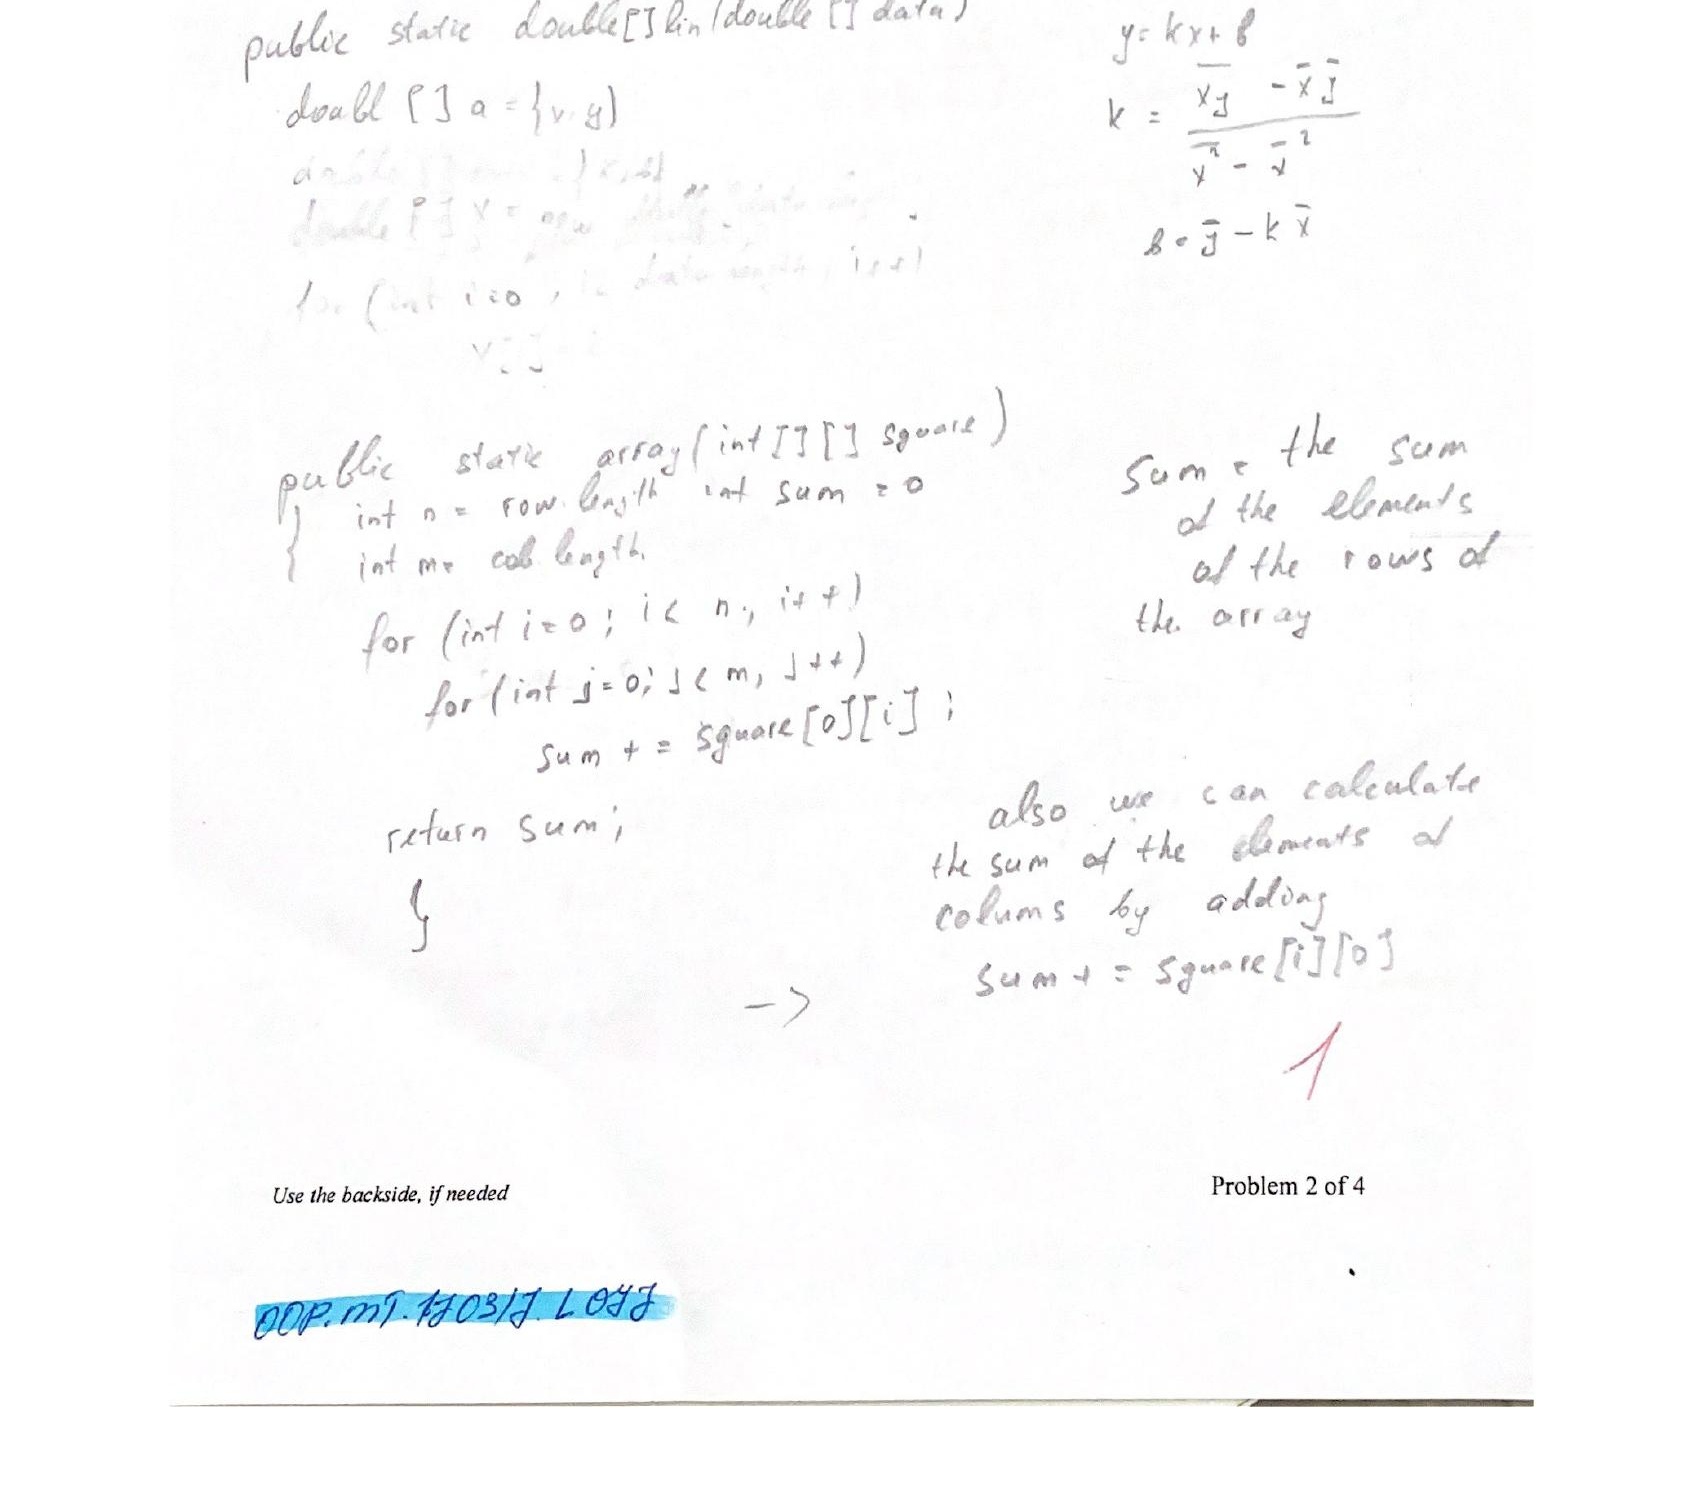 public static double[] lin(double [] data)
doubl [] a = {x, y)
double [] x = new
for (int i=0 , i< data length, i++)
y = kx + b
k = xy - x y
x² - x²
b = y - k x
public static array(int[][] square)
{ int n = row.length int sum = 0
int m= col length.
for (int i=0; i< n; i++)
for (int j=0; j< m, j++)
sum += square[0][i];
return sum;
}
sum = the sum
of the elements
of the rows of
the array
also we can calculate
the sum of the elements of
colums by adding
sum += square[i][0]
->
1
Use the backside, if needed
Problem 2 of 4